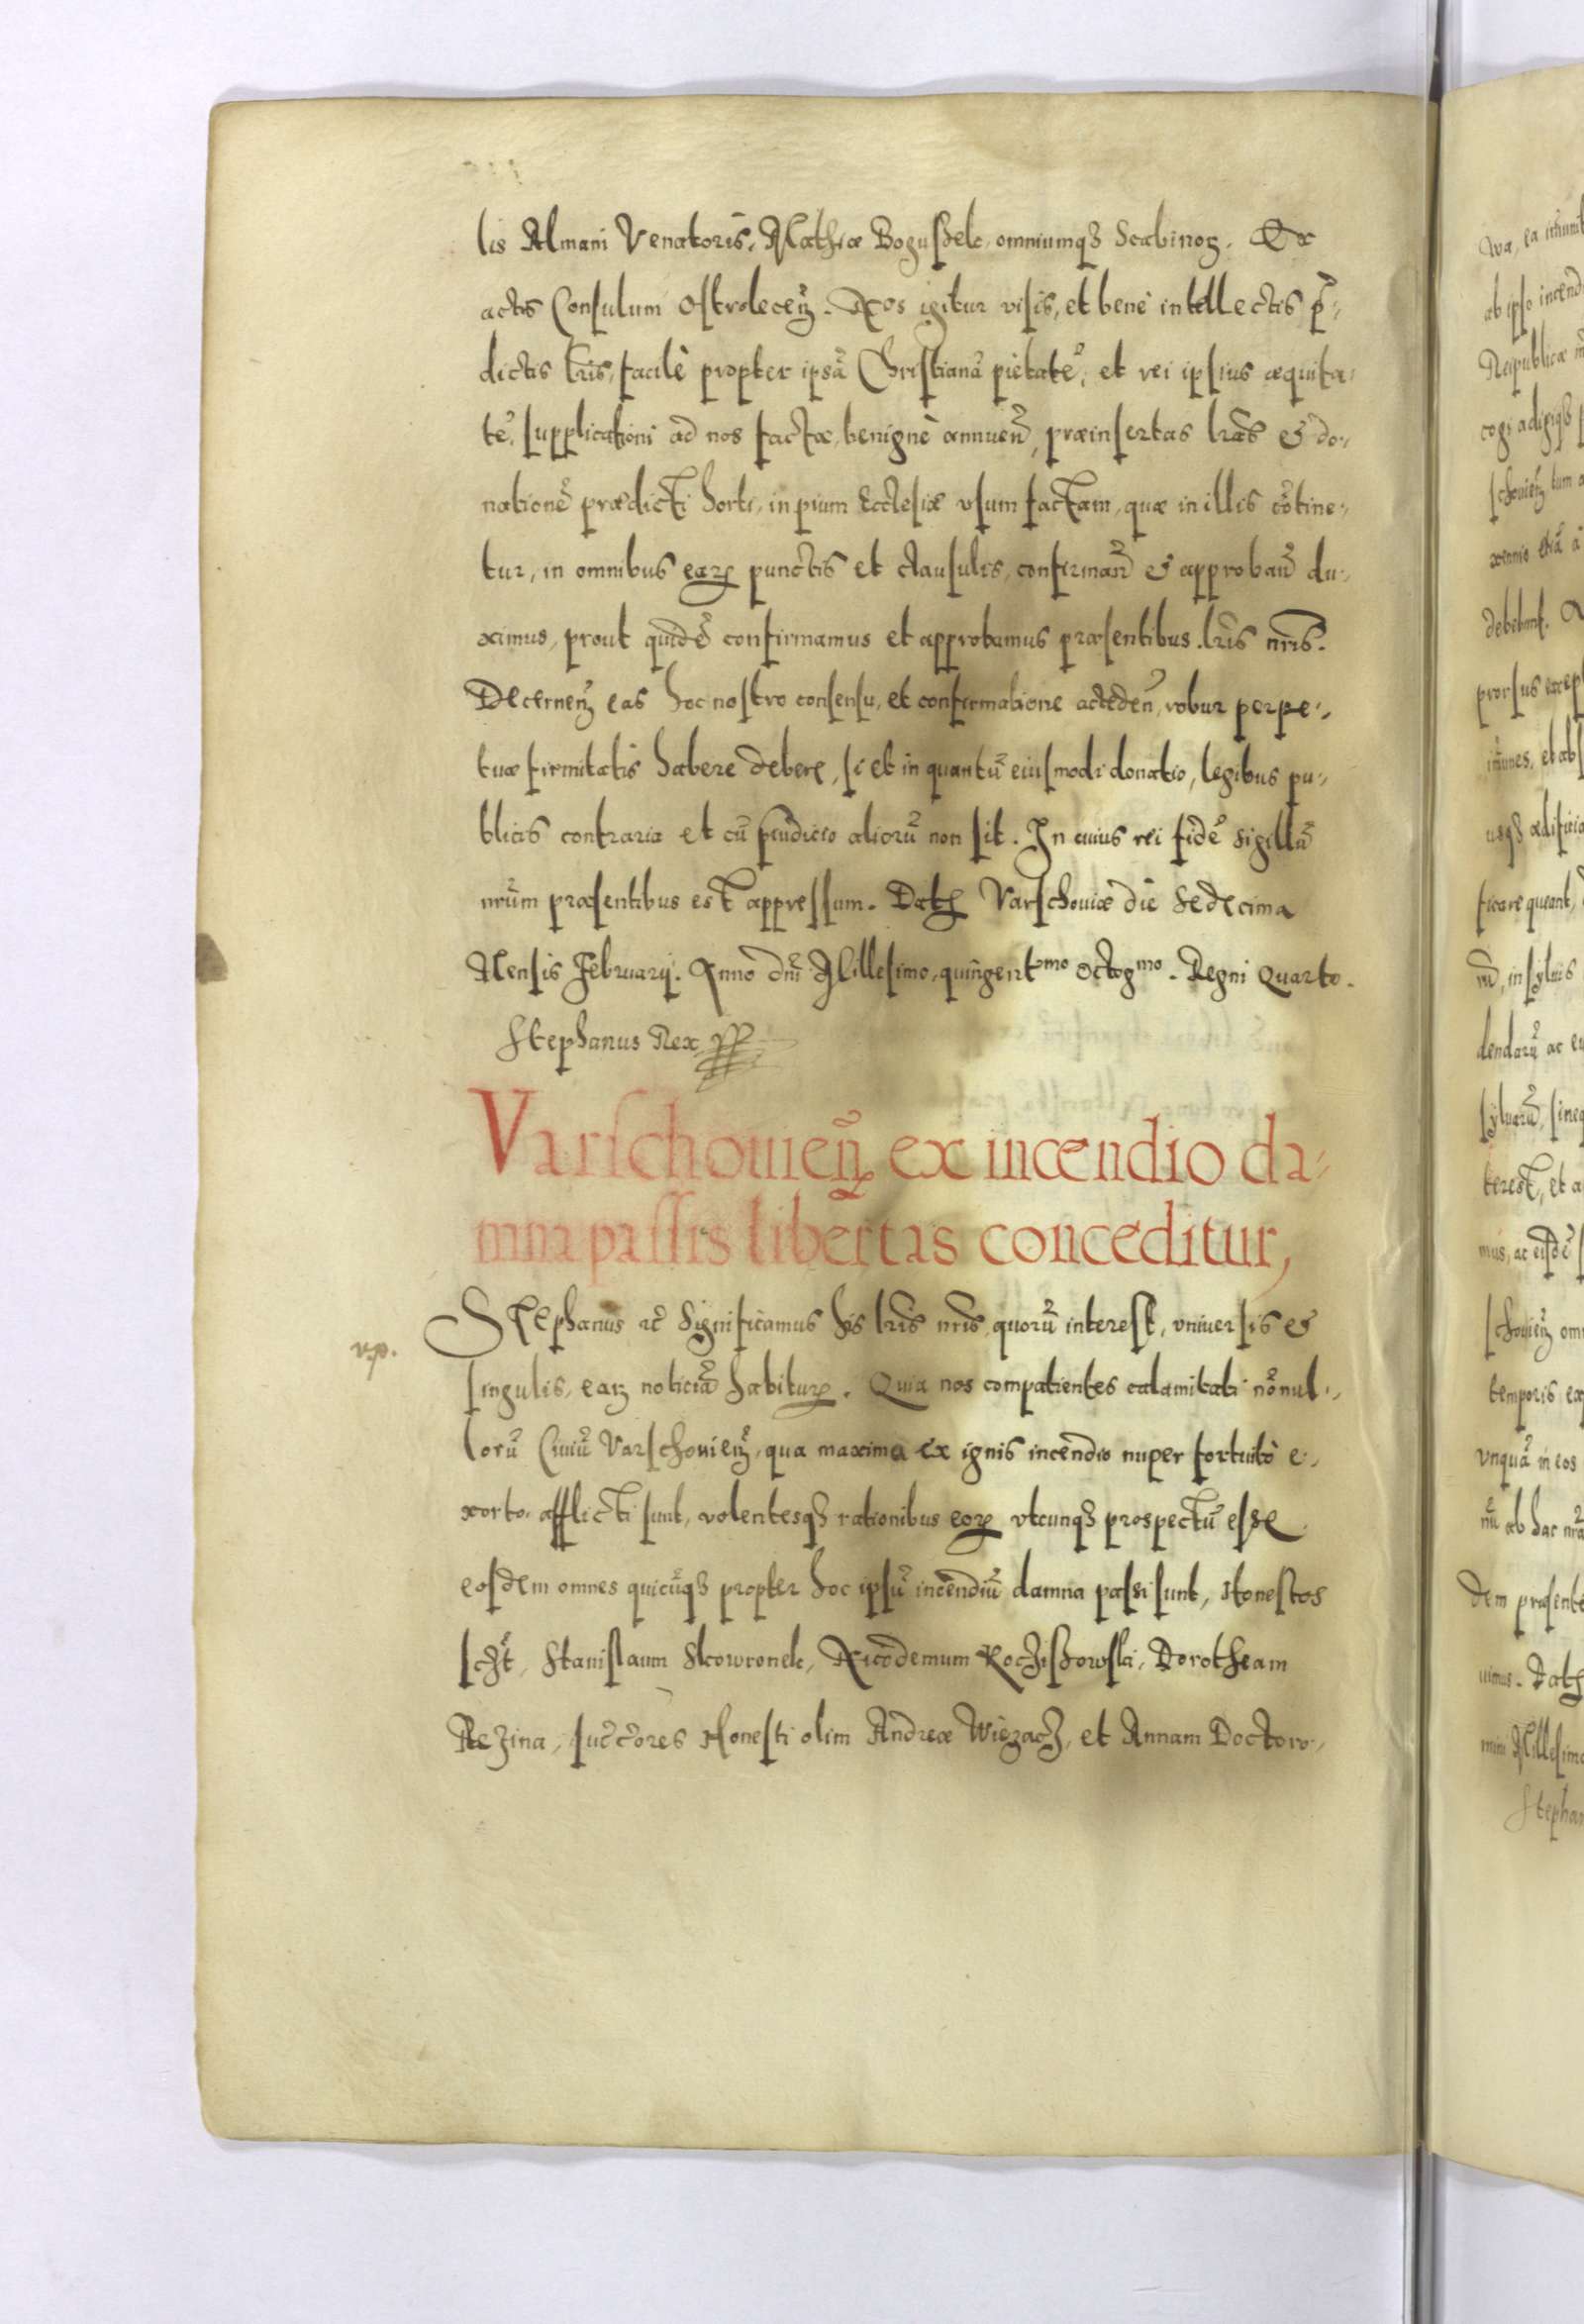 lis Almani Venatoris, Mathiæ Bogusſek, omniumqꝫ Scabinoꝝ. Ex
actis Consulum Ostrolecen̄. Nos igitur visis, et benè intellectis p̄⸗
dictis l̄ris, facilè propter ipsā Christianā pietatē, et rei ipsius æquita⸗
tē, supplicationi ad nos factæ, benignè annuen̄, præinsertas l̄ras & do⸗
nationē prædicti horti, in pium Ecclesiæ vsum factam, quæ in illis cōtine⸗
tur, in omnibus eaꝝ punctis et clausulis, confirman̄ & approban̄ du⸗
ximus, prout quidē confirmamus et approbamus præsentibus l̄ris n̄ris.
Decernen̄ eas hoc nostro consensu, et confirmatione acceden̄, robur perpe⸗
tuæ firmitatis habere debere, si et in quantū eiusmodi donatio, legibus pu⸗
blicis contraria et cū p̄iudicio aliorū non sit. In cuius rei fidē sigillū
nr̄um præsentibus est appressum. Datꝫ Varschouiæ die sedecima
Mensis Februarij. Anno dn̄i Millesimo, quingentmo octogmo. Regni Quarto.
Stephanus Rex
Varschouien̄ ex incendio da⸗
mna passis libertas conceditur,
Stephanus ꝛc̄ Significamus his l̄ris n̄ris, quorū interest, vniuersis &
singulis, eaꝝ noticiā habituꝝ. Quia nos compatientes calamitati nōnul⸗
lorū Ciuiū Varschouien̄, qua maxima ex ignis incendio nuper fortuitò e⸗
xorto, afflicti sunt, volentesqꝫ rationibus eoꝝ vtcunqꝫ prospectū esse
eosdem omnes quicūqꝫ propter hoc ipsū incendiū damna passi sunt, Honestos
scꝫt, Stanislaum Skowronek, Nicodemum Koczisſowski, Dorotheam
Rezina, succ̄ores Honesti olim Andreæ Wiezacz, et Annam Doctoro⸗